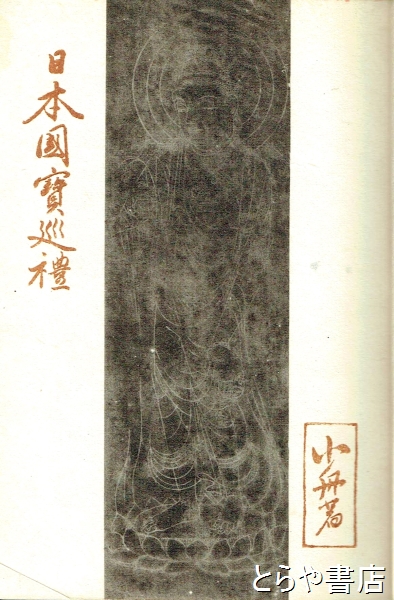 日本國寶巡禮
小舟著
とらや書店